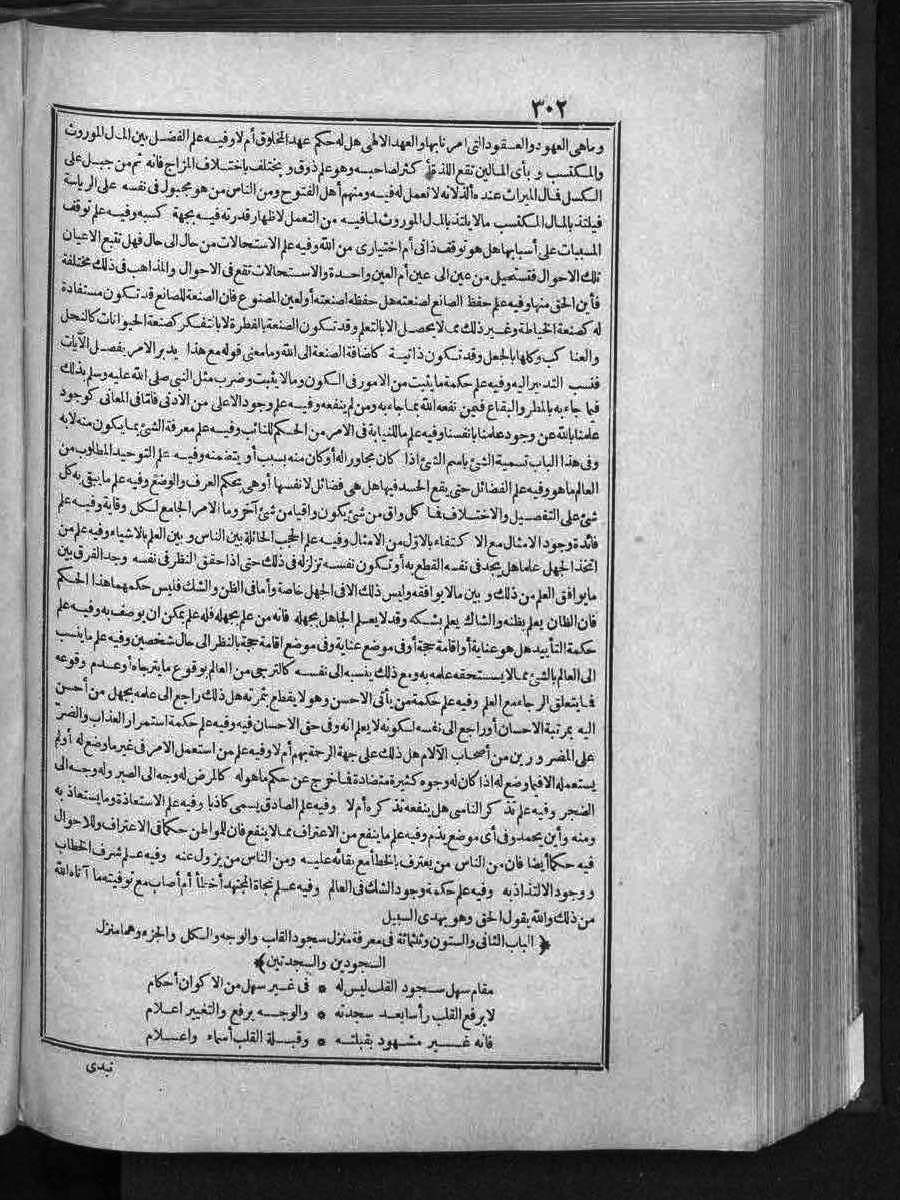 ٣٠٢
وما هى العهود والعقود التى امر نا بها والعهد الالهى هل له حكم عهد المخلوق أم لا وفيه علم الفضل بين المال الموروث
والمكتسب و بأى المالين تقع اللذة أكثر لصاحبه وهو علم ذوق و يختلف باختلاف المزاج فانه ثم من جبل على
الكسل فمال الميراث عنده ألذ لانه لا تعمل له فيه ومنهم أهل الفتوح ومن الناس من هو مجبول فى نفسه على الرياسة
فيلتذ بالمال المكتسب مالا يلتذ بالمال الموروث لما فيه من التعمل لاظهار قدرته فيه بجهة كسبه وفيه علم توقف
المسببات على أسبابها هل هو توقف ذاتى أم اختيارى من الله وفيه علم الاستحالات من حال الى حال فهل تتبع الاعيان
تلك الاحوال فتستحيل من عين الى عين أم العين واحدة والاستحالات تقع فى الاحوال والمذاهب فى ذلك مختلفة
فأين الحق منها وفيه علم حفظ الصانع لصنعته هل حفظه لصنعته أو لعين المصنوع فان الصنعة للصانع قد تكون مستفادة
له كصنعة الخياطة وغير ذلك مما لا يحصل الا بالتعلم وقد تكون الصنعة بالفطرة لا بالتفكر كصنعة الحيوانات كالنحل
والعناكب وكلها بالجعل وقد تكون ذاتية كاضافة الصنعة الى الله وما معنى قوله مع هذا يدبر الامر يفصل الآيات
فنسب التدبير اليه وفيه علم حكمة ما يثبت من الامور فى الكون وما لا يثبت وضرب مثل النبى صلى الله عليه وسلم بذلك
فيما جاء به بالمطر والبقاع فمن نفعه الله بما جاء به ومن لم ينفعه وفيه علم وجود الاعلى من الادنى فأما فى المعانى كوجود
علمنا بالله عن وجود علمنا بانفسنا وفيه علم ما للنيابة فى الامر من الحكم للنائب وفيه علم معرفة الشئ بما يكون منه لا به
وفى هذا الباب تسمية الشئ باسم الشئ اذا كان مجاور اله أو كان منه بسبب أو يتضمنه وفيه علم التوحيد المطلوب من
العالم ما هو وفيه علم الفضائل حتى يقع الحسد فيها هل هى فضائل لا نفسها أو هى بحكم العرف والوضع وفيه علم ما يبقى به كل
شئ على التفصيل والاختلاف فما كل واق من شئ يكون واقيا من شئ آخر وما الامر الجامع لكل وقاية وفيه علم
فائدة وجود الامثال مع الا كتفاء بالاول من الامثال وفيه علم الحجب الحائلة بين الناس و بين العلم بالاشياء وفيه علم من
اتخذ الجهل علما هل يجد فى نفسه القطع به أو تكون نفسه تزلزله فى ذلك حتى اذا حقق النظر فى نفسه وجد الفرق بين
ما يوافق العلم من ذلك و بين ما لا يوافقه وليس ذلك الا فى الجهل خاصة وأما فى الظن والشك فليس حكمهما هذا الحكم
فان الظان يعلم بظنه والشاك يعلم بشكه وقد لا يعلم الجاهل بجهله فانه من علم بجهله فله علم يمكن ان يوصف به وفيه علم
حكمة التأييد هل هو عناية أو اقامة حجة أو فى موضع عناية وفى موضع اقامة حجة بالنظر الى حال شخصين وفيه علم ما ينسب
الى العالم بالشئ مما لا يستحقه علمه به ومع ذلك ينسبه الى نفسه كالترجى من العالم بوقوع ما يترجاه أو عدم وقوعه
فما يتعلق الرجاء مع العلم وفيه علم حكمة من يأتى الاحسن وهو لا يقطع بثمرته هل ذلك راجع الى علمه بجهل من أحسن
اليه بمرتبة الاحسان أو راجع الى نفسه لكونه لا يعلم انه وفى حق الاحسان فيه وفيه علم حكمة استمرار العذاب والضر
على المضرورين من أصحاب الآلام هل ذلك على جهة الرحمة بهم أم لا وفيه علم من استعمل الامر فى غير ما وضع له أو لم
يستعمله الا فيما وضع له اذا كان له وجوه كثيرة متضادة فما خرج عن حكم ما هو له كالمرض له وجه الى الصبر وله وجه الى
الضجر وفيه علم تذكر الناسى هل ينفعه تذكره أم لا وفيه علم الصادق يسمى كاذبا وفيه علم الاستعاذة وما يستعاذ به
ومنه وأين يحمد وفى أى موضع يذم وفيه علم ما ينفع من الاعتراف مما لا ينفع فان للمواطن حكما فى الاعتراف وللاحوال
فيه حكما أيضا فان من الناس من يعترف بالخطأ مع بقائه عليه ومن الناس من يزول عنه وفيه علم شرف الخطاب
ووجود الالتذاذ به وفيه علم حكمة وجود الشك فى العالم وفيه علم نجاة المجتهد أخطأ أم أصاب مع توفيته ما آتاه الله
من ذلك والله يقول الحق وهو يهدى السبيل
﴿الباب الثانى والستون وثلثمائة فى معرفة منزل سجود القلب والوجه والكل والجزء وهما منزل
السجودين والسجدتين﴾
مقام سهل سجود القلب ليس له * فى غير سهل من الاكوان أحكام
لا يرفع القلب رأسا بعد سجدته * والوجه يرفع والتغيير اعلام
فانه غير مشهود بقبلته * وقبلة القلب أسماء واعلام
تبدى